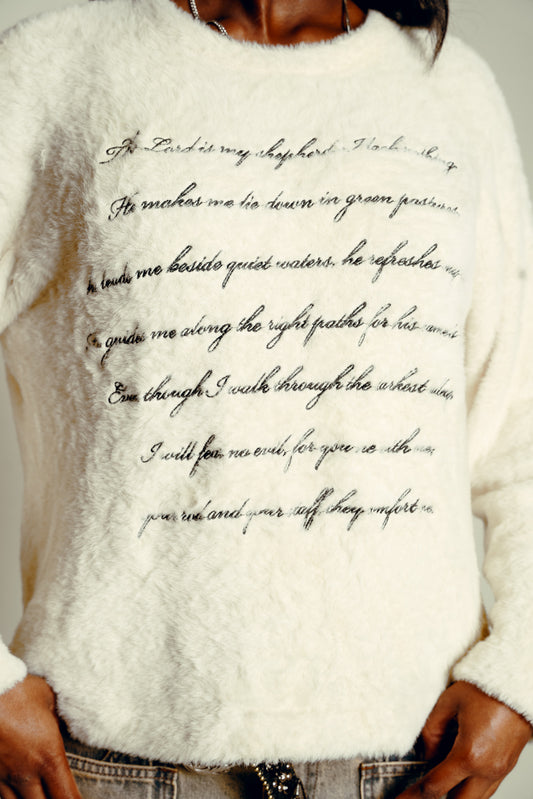 The Lord is my shepherd, I lack nothing.
He makes me lie down in green pastures,
he leads me beside quiet waters, he refreshes my
He guides me along the right paths for his name's
Even though I walk through the darkest valley,
I will fear no evil, for you are with me;
your rod and your staff, they comfort me.